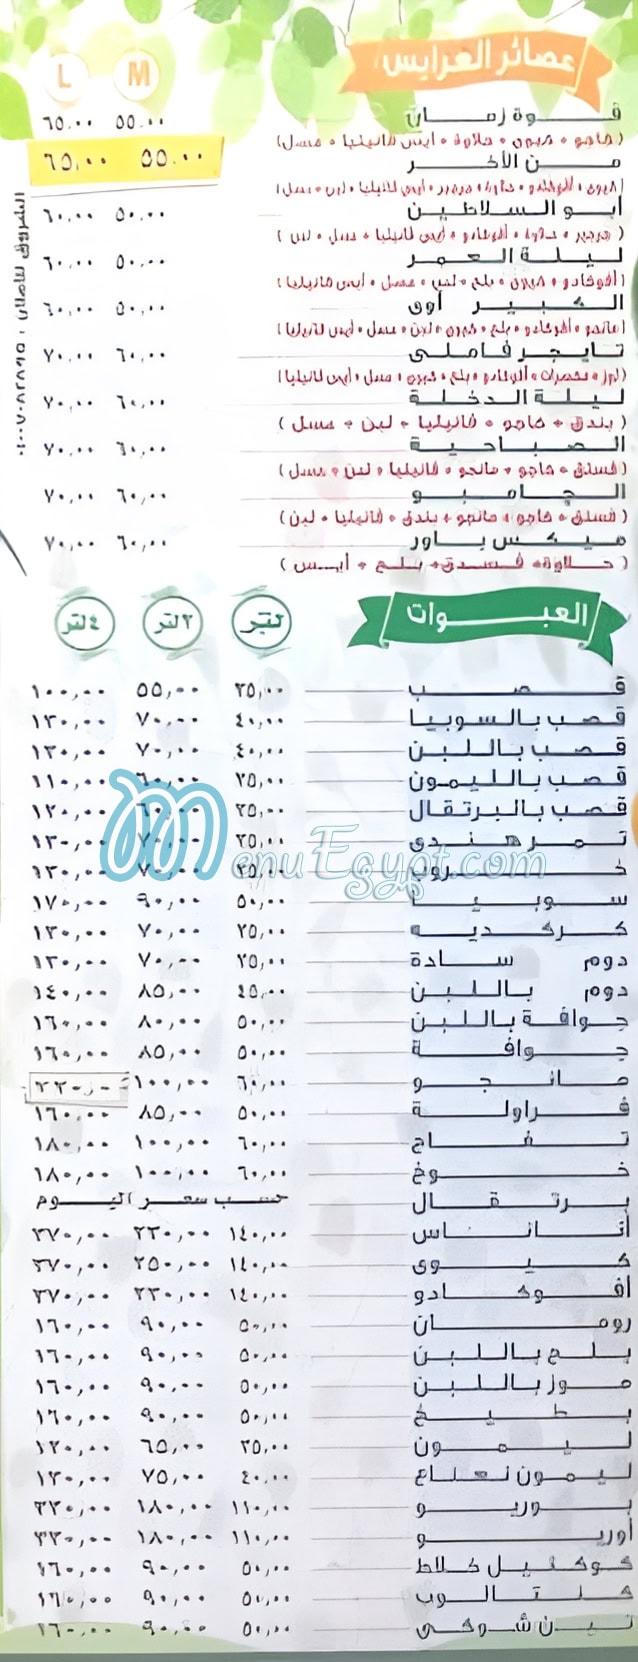 عصائر العرايس
M L
قوة زمان ٥٥.٠٠ ٦٥.٠٠
من الآخر ٥٥.٠٠ ٦٥.٠٠
أبو السلاطين ٥٠.٠٠ ٦٠.٠٠
ليلة العمر ٥٠.٠٠ ٦٠.٠٠
الكبير أوى ٥٠.٠٠ ٦٠.٠٠
تايجر فاملى ٦٠.٠٠ ٧٠.٠٠
ليلة الدخلة ٦٠.٠٠ ٧٠.٠٠
( بندق + كاجو + فانيليا + لبن + عسل )
الصباحية ٦٠.٠٠ ٧٠.٠٠
(فستق + كاجو + مانجو + فانيليا + لبن + عسل )
الجامبو ٦٠.٠٠ ٧٠.٠٠
(فستق + كاجو + مانجو + بندق + فانيليا + لبن)
ميكس باور ٦٠.٠٠ ٧٠.٠٠
( حلاوة+ فستدق+ بلح + أيس )
العبوات
لتر ٢لتر ٤لتر
قصب ٣٥,٠٠ ٥٥,٠٠ ١٠٠,٠٠
قصب بالسوبيا ٤٠,٠٠ ٧٠,٠٠ ١٣٠,٠٠
قصب باللبن ٤٠,٠٠ ٧٠,٠٠ ١٣٠,٠٠
قصب بالليمون ٣٥,٠٠ ٦٠,٠٠ ١١٠,٠٠
قصب بالبرتقال ٣٥,٠٠ ٦٠,٠٠ ١٢٠,٠٠
تمر هندى ٣٥,٠٠ ٧٠,٠٠ ١٣٠,٠٠
خروب ٣٥,٠٠ ٧٠,٠٠ ١٣٠,٠٠
MenuEgypt.com
سوبيا ٥٠,٠٠ ٩٠,٠٠ ١٧٠,٠٠
كركديه ٣٥,٠٠ ٧٠,٠٠ ١٣٠,٠٠
دوم سادة ٣٥,٠٠ ٧٠,٠٠ ١٣٠,٠٠
دوم باللبن ٤٥,٠٠ ٨٥,٠٠ ١٤٠,٠٠
جوافة باللبن ٥٠,٠٠ ٨٠,٠٠ ١٦٠,٠٠
جوافة ٥٠,٠٠ ٨٥,٠٠ ١٦٠,٠٠
مانجو ٦٠,٠٠ ١٠٠,٠٠ ٢٢٠,٠٠
فراولة ٥٠,٠٠ ٨٥,٠٠ ١٦٠,٠٠
تفاح ٦٠,٠٠ ١٠٠,٠٠ ١٨٠,٠٠
خوخ ٦٠,٠٠ ١٠٠,٠٠ ١٨٠,٠٠
برتقال حسب سعر اليوم
أناناس ١٤٠,٠٠ ٢٣٠,٠٠ ٣٧٠,٠٠
كيوى ١٤٠,٠٠ ٢٥٠,٠٠ ٣٧٠,٠٠
أفوكادو ١٤٠,٠٠ ٢٣٠,٠٠ ٣٧٠,٠٠
رومان ٥٠,٠٠ ٩٠,٠٠ ١٦٠,٠٠
بلح باللبن ٥٠,٠٠ ٩٠,٠٠ ١٦٠,٠٠
موز باللبن ٥٠,٠٠ ٩٠,٠٠ ١٦٠,٠٠
بطيخ ٥٠,٠٠ ٩٠,٠٠ ١٦٠,٠٠
ليمون ٣٥,٠٠ ٦٥,٠٠ ١٢٠,٠٠
ليمون نعناع ٤٠,٠٠ ٧٥,٠٠ ١٣٠,٠٠
بوريو ١١٠,٠٠ ١٨٠,٠٠ ٣٣٠,٠٠
أوريو ١١٠,٠٠ ١٨٠,٠٠ ٣٣٠,٠٠
كوكتيل كلاط ٥٠,٠٠ ٩٠,٠٠ ١٦٠,٠٠
كنتالوب ٥٠,٠٠ ٩٠,٠٠ ١٦٠,٠٠
تين شوكى ٥٠,٠٠ ٩٠,٠٠ ١٦٠,٠٠